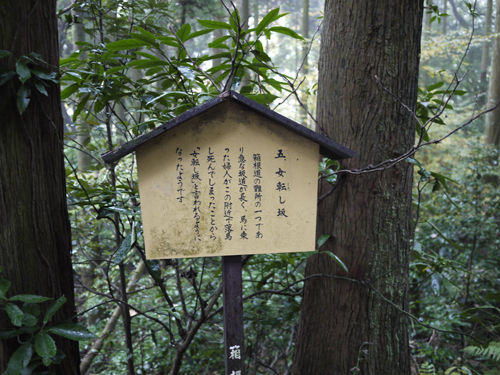 五、女転し坂
箱根道の難所の一つであ
り急な坂道が長く、馬に乗
った婦人がこの附近で落馬
し死んでしまったことから
「女転し坂」と言われるように
なったようです
箱